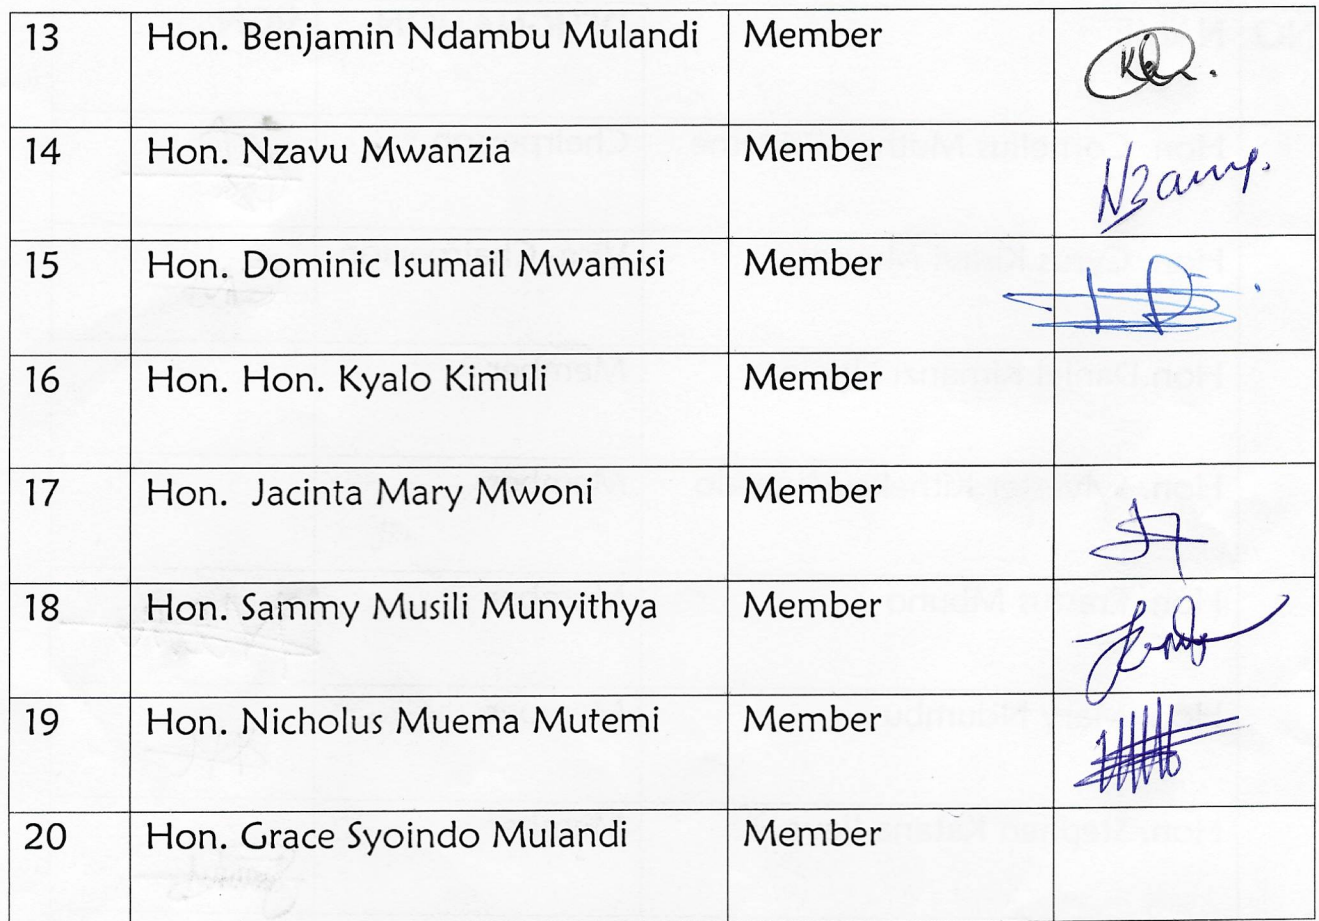 13 Hon. Benjamin Ndambu Mulandi Member
14 Hon. Nzavu Mwanzia Member
15 Hon. Dominic Isumail Mwamisi Member
16 Hon. Hon. Kyalo Kimuli Member
17 Hon. Jacinta Mary Mwoni Member
18 Hon. Sammy Musili Munyithya Member
19 Hon. Nicholus Muema Mutemi Member
20 Hon. Grace Syoindo Mulandi Member